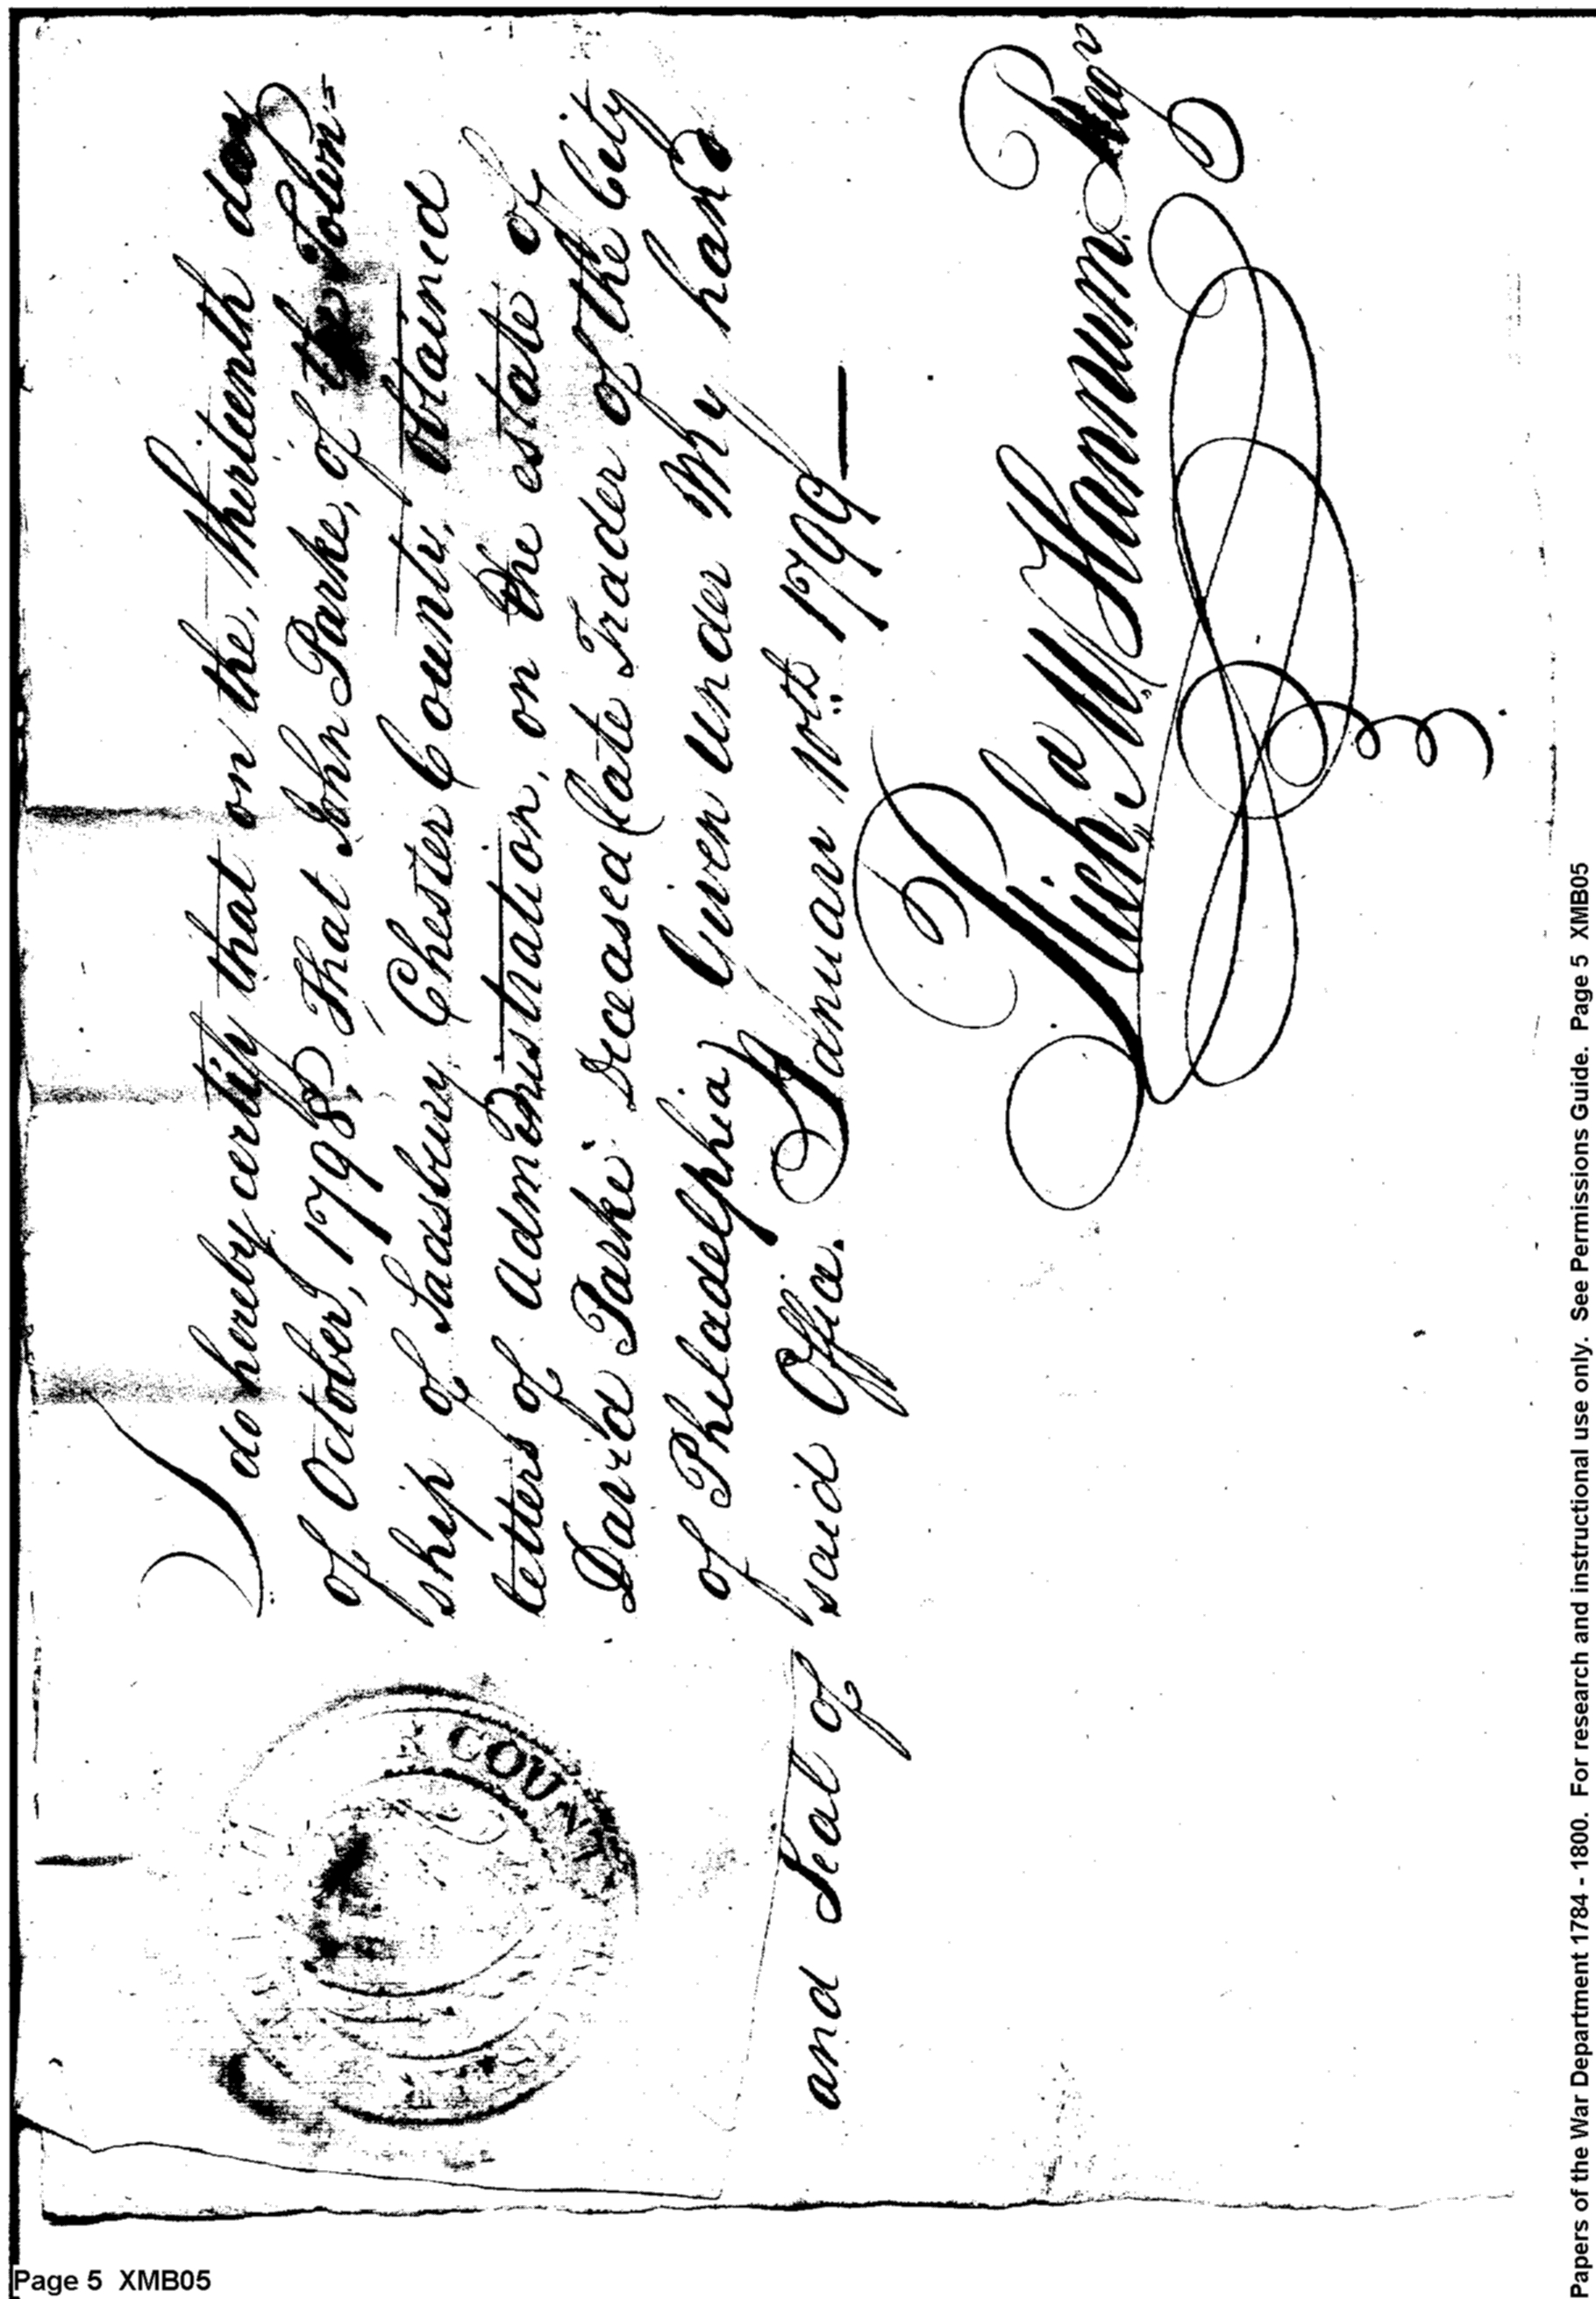 I do hereby certify that on the, thirteenth day
of October, 1798, That John Parke, of the Town=
ship of Sadsbury Chester County, obtained
letters of Administration, on the estate of
David Parke Deceased (late Trader of the City
of Philadelphia) Given under My hand
and Seal of said Office. January 10th. 1799—
Richd. M Hannum Regr
COUNTY
Page 5 XMB05
Papers of the War Department 1784 - 1800. For research and instructional use only. See Permissions Guide. Page 5 XMB05